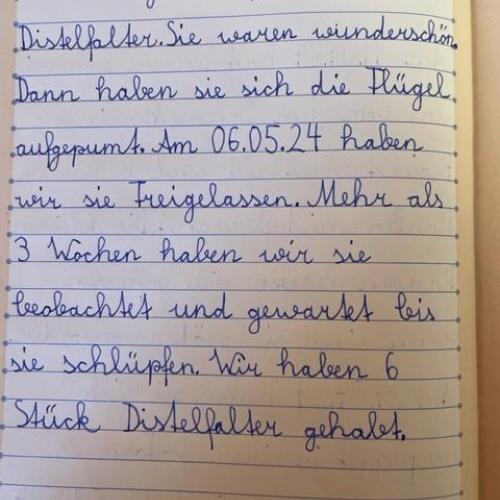 Distelfalter. Sie waren wunderschön.
Dann haben sie sich die Flügel
aufgepumt. Am 06.05.24 haben
wir sie Freigelassen. Mehr als
3 Wochen haben wir sie
beobachtet und gewartet bis
sie schlüpfen. Wir haben 6
Stück Distelfalter gehabt.